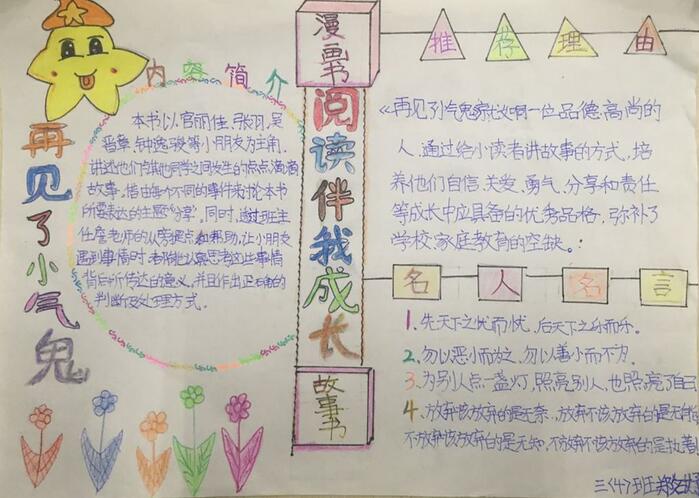 再见了小气鬼
内容简介
本书以官丽佳、张羽、吴
小朋友为主角,
讲述他们与其他同学之间发生的点点滴滴
故事,借由每个不同的事件来讨论本书
所要表达的主题“分享”,同时,透过班主
任 老师的从旁提点和帮助,让小朋友
遇到事情时 思考这些事情
背后所传达的意义,并且作出正确的
判断及处理方式.
漫画书
阅读伴我成长
故事书
推荐理由
《再见了小气鬼 一位品德高尚的
人,通过给小读者讲故事的方式,培
养他们自信、关爱、勇气、分享和责任
等成长中应具备的优秀品格,弥补了
学校、家庭教育的空缺。
名人名言
1. 先天下之忧而忧,后天下之乐而乐.
2. 勿以恶小而为之,勿以善小而不为.
3. 为别人点一盏灯,照亮别人,也照亮了自己
4. 放弃该放弃的是无奈,放弃不该放弃的是无能
不放弃该放弃的是无知,不放弃不该放弃的是执着
三(4)班 郑